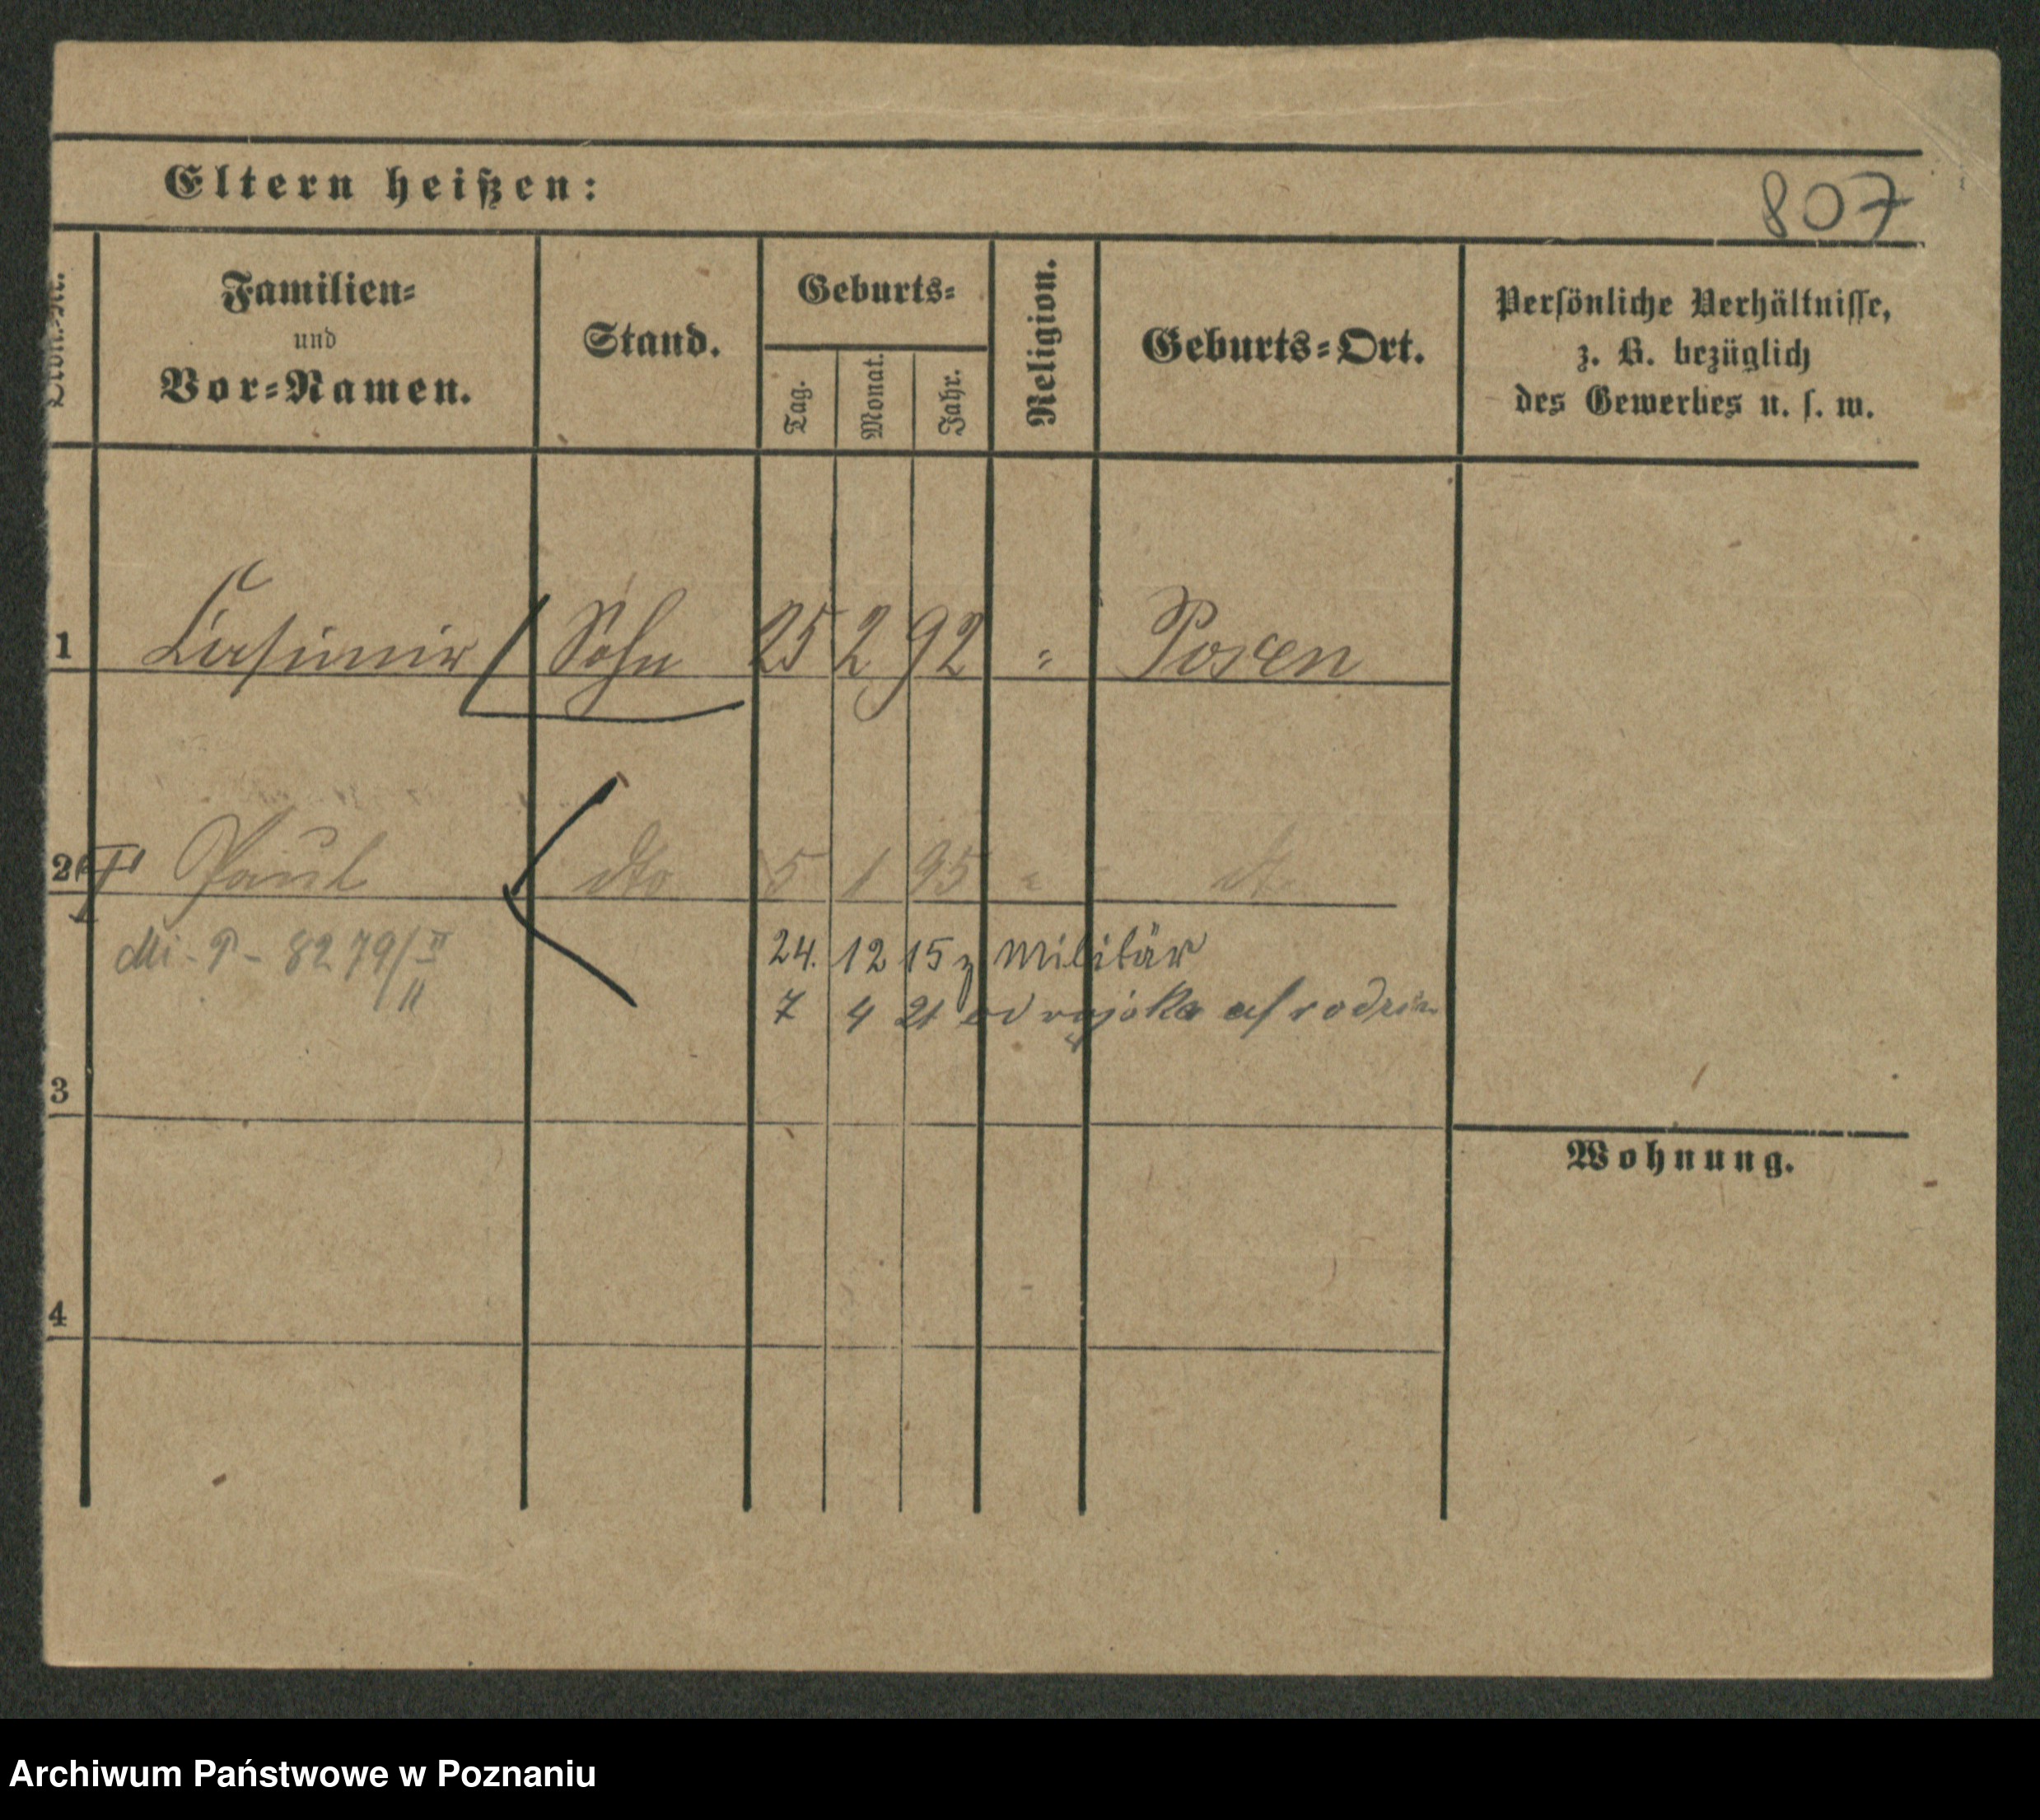 Eltern heißen:
807
Ordn.-Nr.
Familien-
und
Vor-Namen.
Stand.
Geburts-
Tag.
Monat.
Jahr.
Religion.
Geburts-Ort.
Persönliche Verhältnisse,
z. B. bezüglich
des Gewerbes u. s. w.
1 Casimir Sohn 25 2 92 " Posen
2 Paul dto 5 1 95 " dto
Mi-P-8279/II
24. 12 15 z Militär
7 4 21 od wojska
3
Wohnung.
4
Archiwum Państwowe w Poznaniu